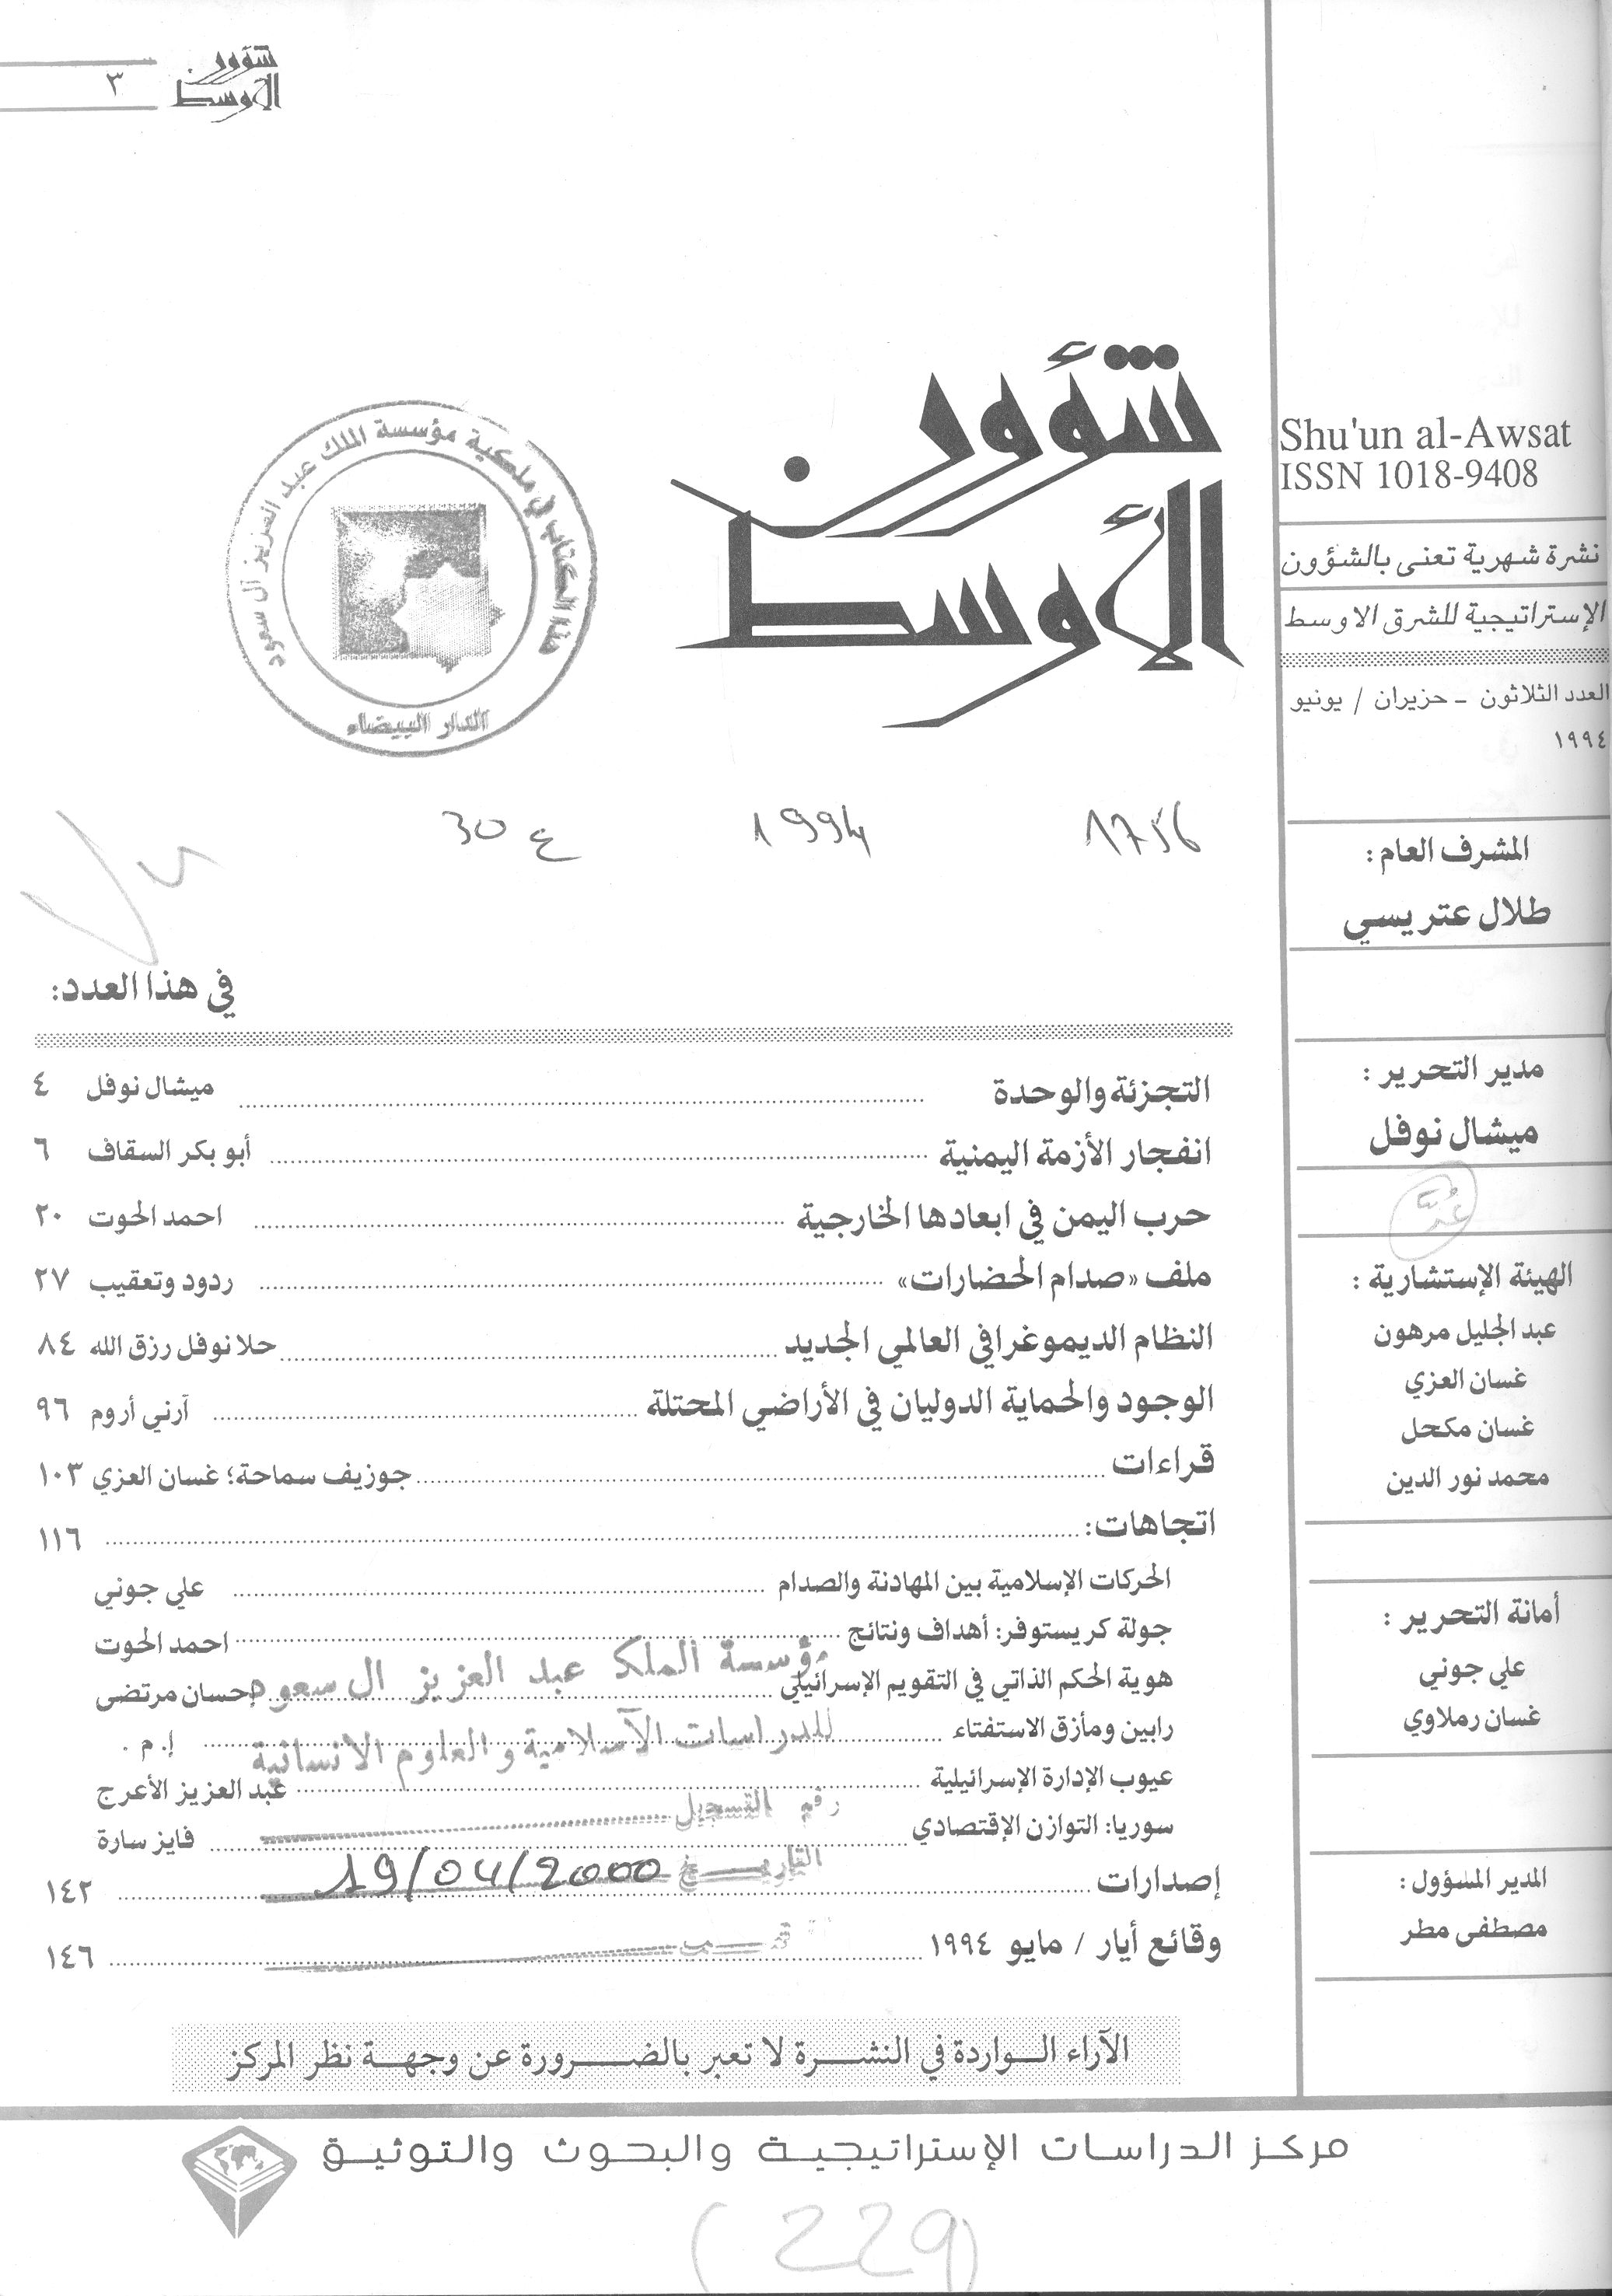 شؤون
الأوسط
٣
شؤون
الأوسط
Shu'un al-Awsat
ISSN 1018-9408
نشرة شهرية تعنى بالشؤون
الإستراتيجية للشرق الاوسط
العدد الثلاثون – حزيران / يونيو
١٩٩٤
المشرف العام :
طلال عتريسي
مدير التحرير :
ميشال نوفل
الهيئة الإستشارية :
عبد الجليل مرهون
غسان العزي
غسان مكحل
محمد نور الدين
أمانة التحرير :
علي جوني
غسان رملاوي
المدير المسؤول :
مصطفى مطر
هذا الكتاب في ملكية مؤسسة الملك عبد العزيز آل سعود
الدار البيضاء
1756 1994 ع 30
في هذا العدد:
التجزئة والوحدة ........ ميشال نوفل ٤
انفجار الأزمة اليمنية ........ أبو بكر السقاف ٦
حرب اليمن في ابعادها الخارجية ........ احمد الحوت ٢٠
ملف «صدام الحضارات» ........ ردود وتعقيب ٢٧
النظام الديموغرافي العالمي الجديد ........ حلا نوفل رزق الله ٨٤
الوجود والحماية الدوليان في الأراضي المحتلة ........ آرني أروم ٩٦
قراءات ........ جوزيف سماحة؛ غسان العزي ١٠٣
اتجاهات: ........ ١١٦
الحركات الإسلامية بين المهادنة والصدام ........ علي جوني
جولة كريستوفر: أهداف ونتائج ........ احمد الحوت
هوية الحكم الذاتي في التقويم الإسرائيلي ........ إحسان مرتضى
رابين ومأزق الاستفتاء ........ إ. م .
عيوب الإدارة الإسرائيلية ........ عبد العزيز الأعرج
سوريا: التوازن الإقتصادي ........ فايز سارة
إصدارات ........ ١٤٢
وقائع أيار / مايو ١٩٩٤ ........ ١٤٦
مؤسسة الملك عبد العزيز ال سعود
للدراسات الاسلامية و العلوم الانسانية
رقم التسجيل
التاريخ 19/04/2000
الآراء الواردة في النشرة لا تعبر بالضرورة عن وجهة نظر المركز
مركز الدراسات الإستراتيجية والبحوث والتوثيق
(229)